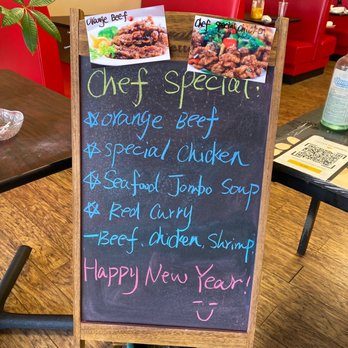 Orange Beef
Chef special Chicken
Chef Special!
☆Orange Beef
☆Special Chicken
☆Seafood Jombo Soup
☆Red Curry
-Beef. Chicken, Shrimp
Happy New Year!